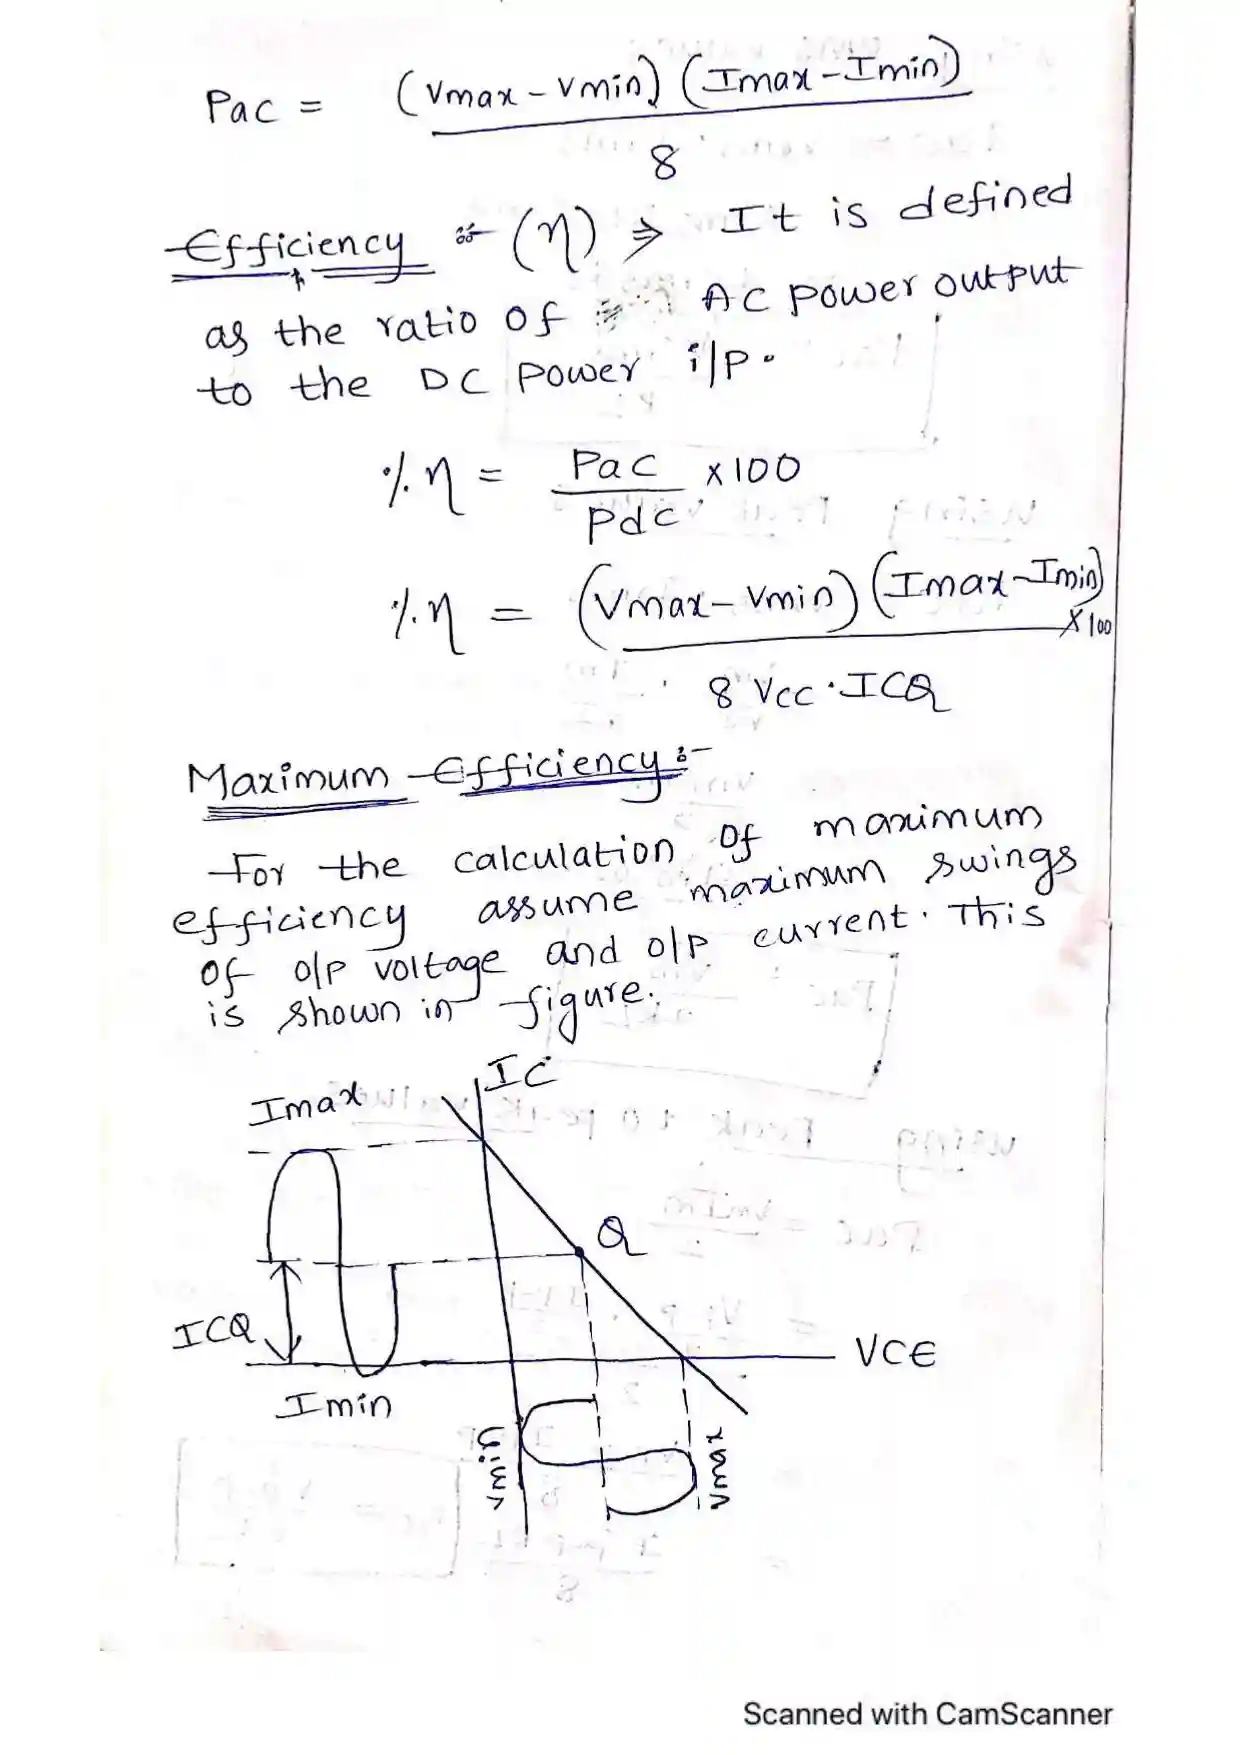 Pac = (Vmax - Vmin) (Imax - Imin)
8
Efficiency :- (η) ⇒ It is defined
as the ratio of AC power output
to the DC power i/p.
% η = Pac × 100
Pdc
% η = (Vmax - Vmin) (Imax - Imin) × 100
8 Vcc · ICQ
Maximum Efficiency :-
For the calculation of maximum
efficiency assume maximum swings
of o/p voltage and o/p current. This
is shown in figure.
IC
Imax
Q
ICQ
VCE
Imin
Vmin
Vmax
Scanned with CamScanner